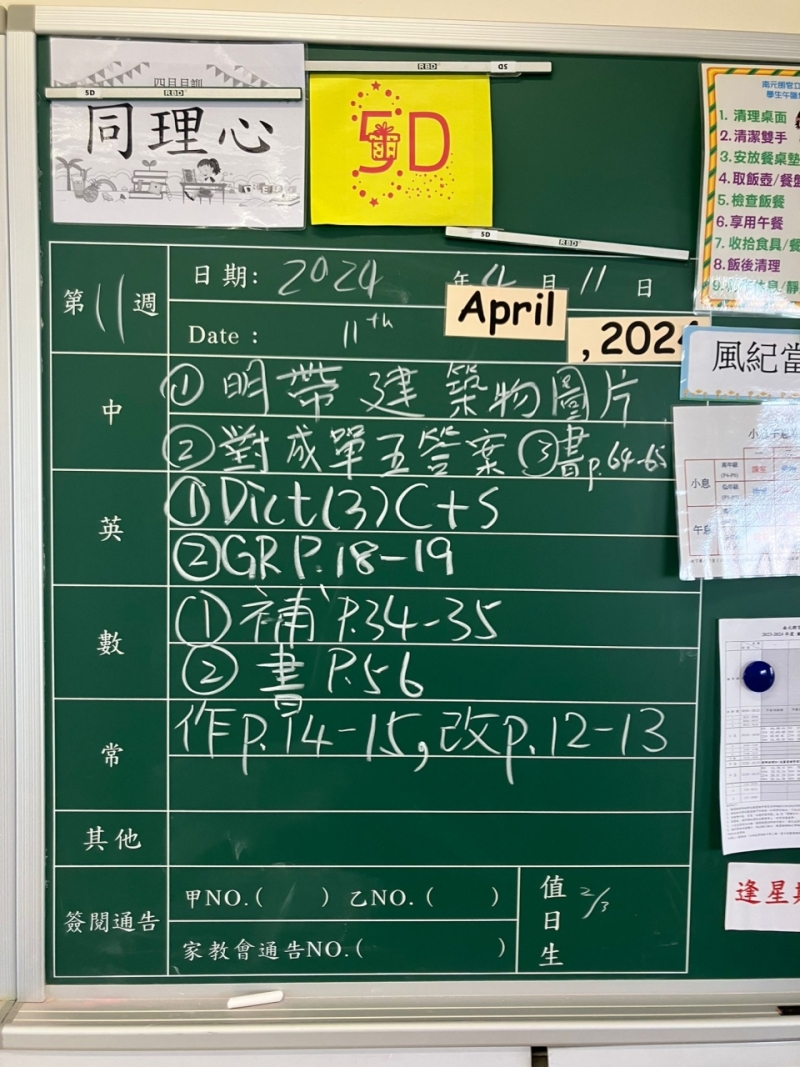 四月月訓
5D
RBD
同理心
RBD
5D
5D
5D
RBD
學生午膳
1. 清理桌面
2.清潔雙手
3.安放餐桌墊
4.取飯壺/餐盤
5.檢查飯餐
6.享用午餐
7.收拾食具/餐
8.飯後清理
第11週
日期: 2024 年 4 月 11 日
Date : 11th April , 2024
風紀當
中
① 明帶建築物圖片
② 對成單五答案 ③書p.64-65
英
①Dict(3)C+S
②GR P.18-19
數
①補 P.34-35
② 書 P.56
常
作p.14-15,改p.12-13
其他
簽閱通告
甲NO.( ) 乙NO.( )
家教會通告NO.( )
值日生 2/3
小息
午息
逢星期